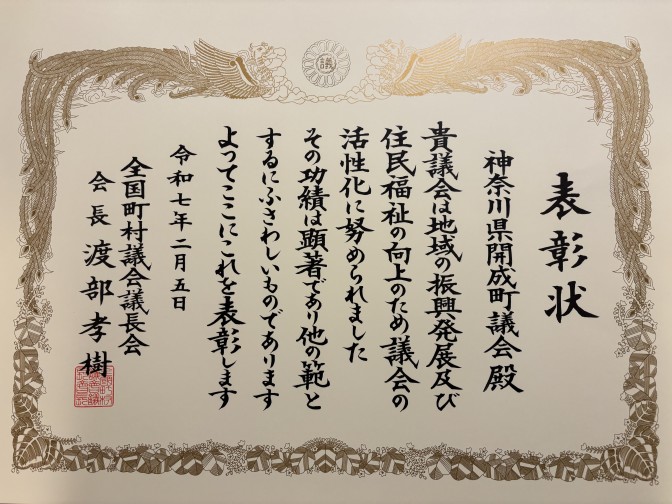 議
表彰状
神奈川県開成町議会殿
貴議会は地域の振興発展及び
住民福祉の向上のため議会の
活性化に努められました
その功績は顕著であり他の範と
するにふさわしいものであります
よってここにこれを表彰します
令和七年二月五日
全国町村議会議長会
会長渡部孝樹